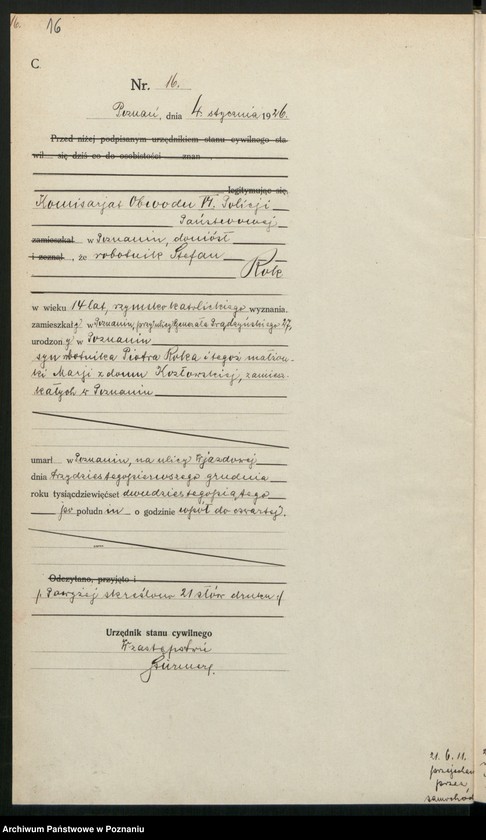 16. 16
C
Nr. 16.
Poznań, dnia 4 stycznia 1926.
Przed niżej podpisanym urzędnikiem stanu cywilnego sta
wił się dziś co do osobistości znan ,
legitymując się
Komisarjat Obwodu VI. Policji
Państwowej
zamieszkał w Poznaniu, doniósł
i zeznał , że robotnik Stefan
Rok
w wieku 14 lat, rzymskokatolickiego wyznania.
zamieszkały w Poznaniu, przy ulicy Generała Prądzyńskiego 27,
urodzony w Poznaniu
syn robotnika Piotra Roka i tegoż małżon-
ki Marji z domu Kozłowskiej, zamiesz-
kałych w Poznaniu
umarł w Poznaniu, na ulicy Wjazdowej
dnia trzydziestego pierwszego grudnia
roku tysiącdziewięćset dwudziestego piątego
po południu o godzinie wpół do czwartej.
Odczytano, przyjęto i
Powyżej skreślono 21 słów druku
Urzędnik stanu cywilnego
W zastępstwie
21. 6. 11.
przejechan
przez
samochód
Archiwum Państwowe w Poznaniu